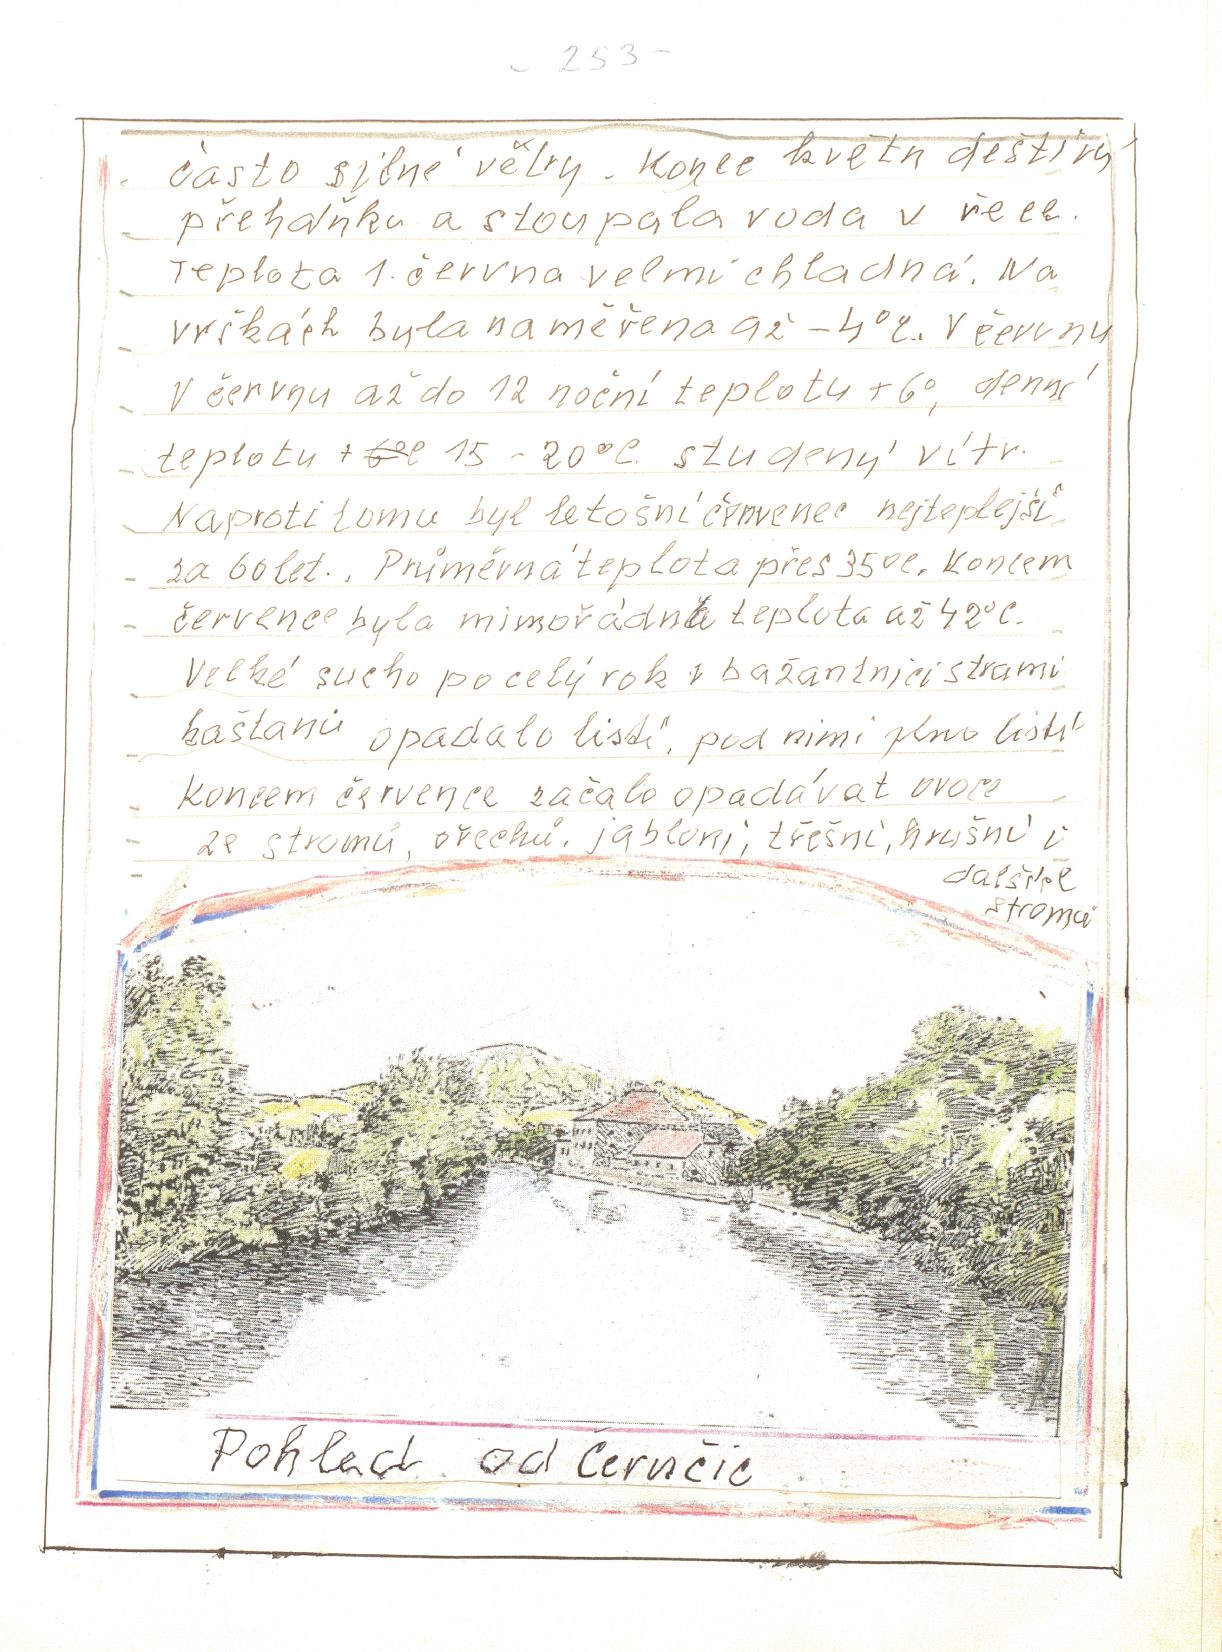 - 253 -
často silné větry. Konec květn deštivý
přeháňku a stoupala voda v řece.
Teplota 1. června velmi chladná. Na
vrškách byla naměřena až -4°C. V červnu
V červnu až do 12 noční teplotu +6°, denní
teplotu + 6°C 15 - 20°C. studený vítr.
Naproti tomu byl letošní červenec nejteplejší
za 60 let.. Průměrná teplota přes 35°C. Koncem
července byla mimořádně teplota až 42°C.
Velké sucho po celý rok v bažantnici stromů
kaštanů opadalo listí, pod nimi plno listí
Koncem července začalo opadávat ovoce
ze stromů, ořechů, jabloní, třešní, hrušní i
dalších
stromů
Pohled od Černčic